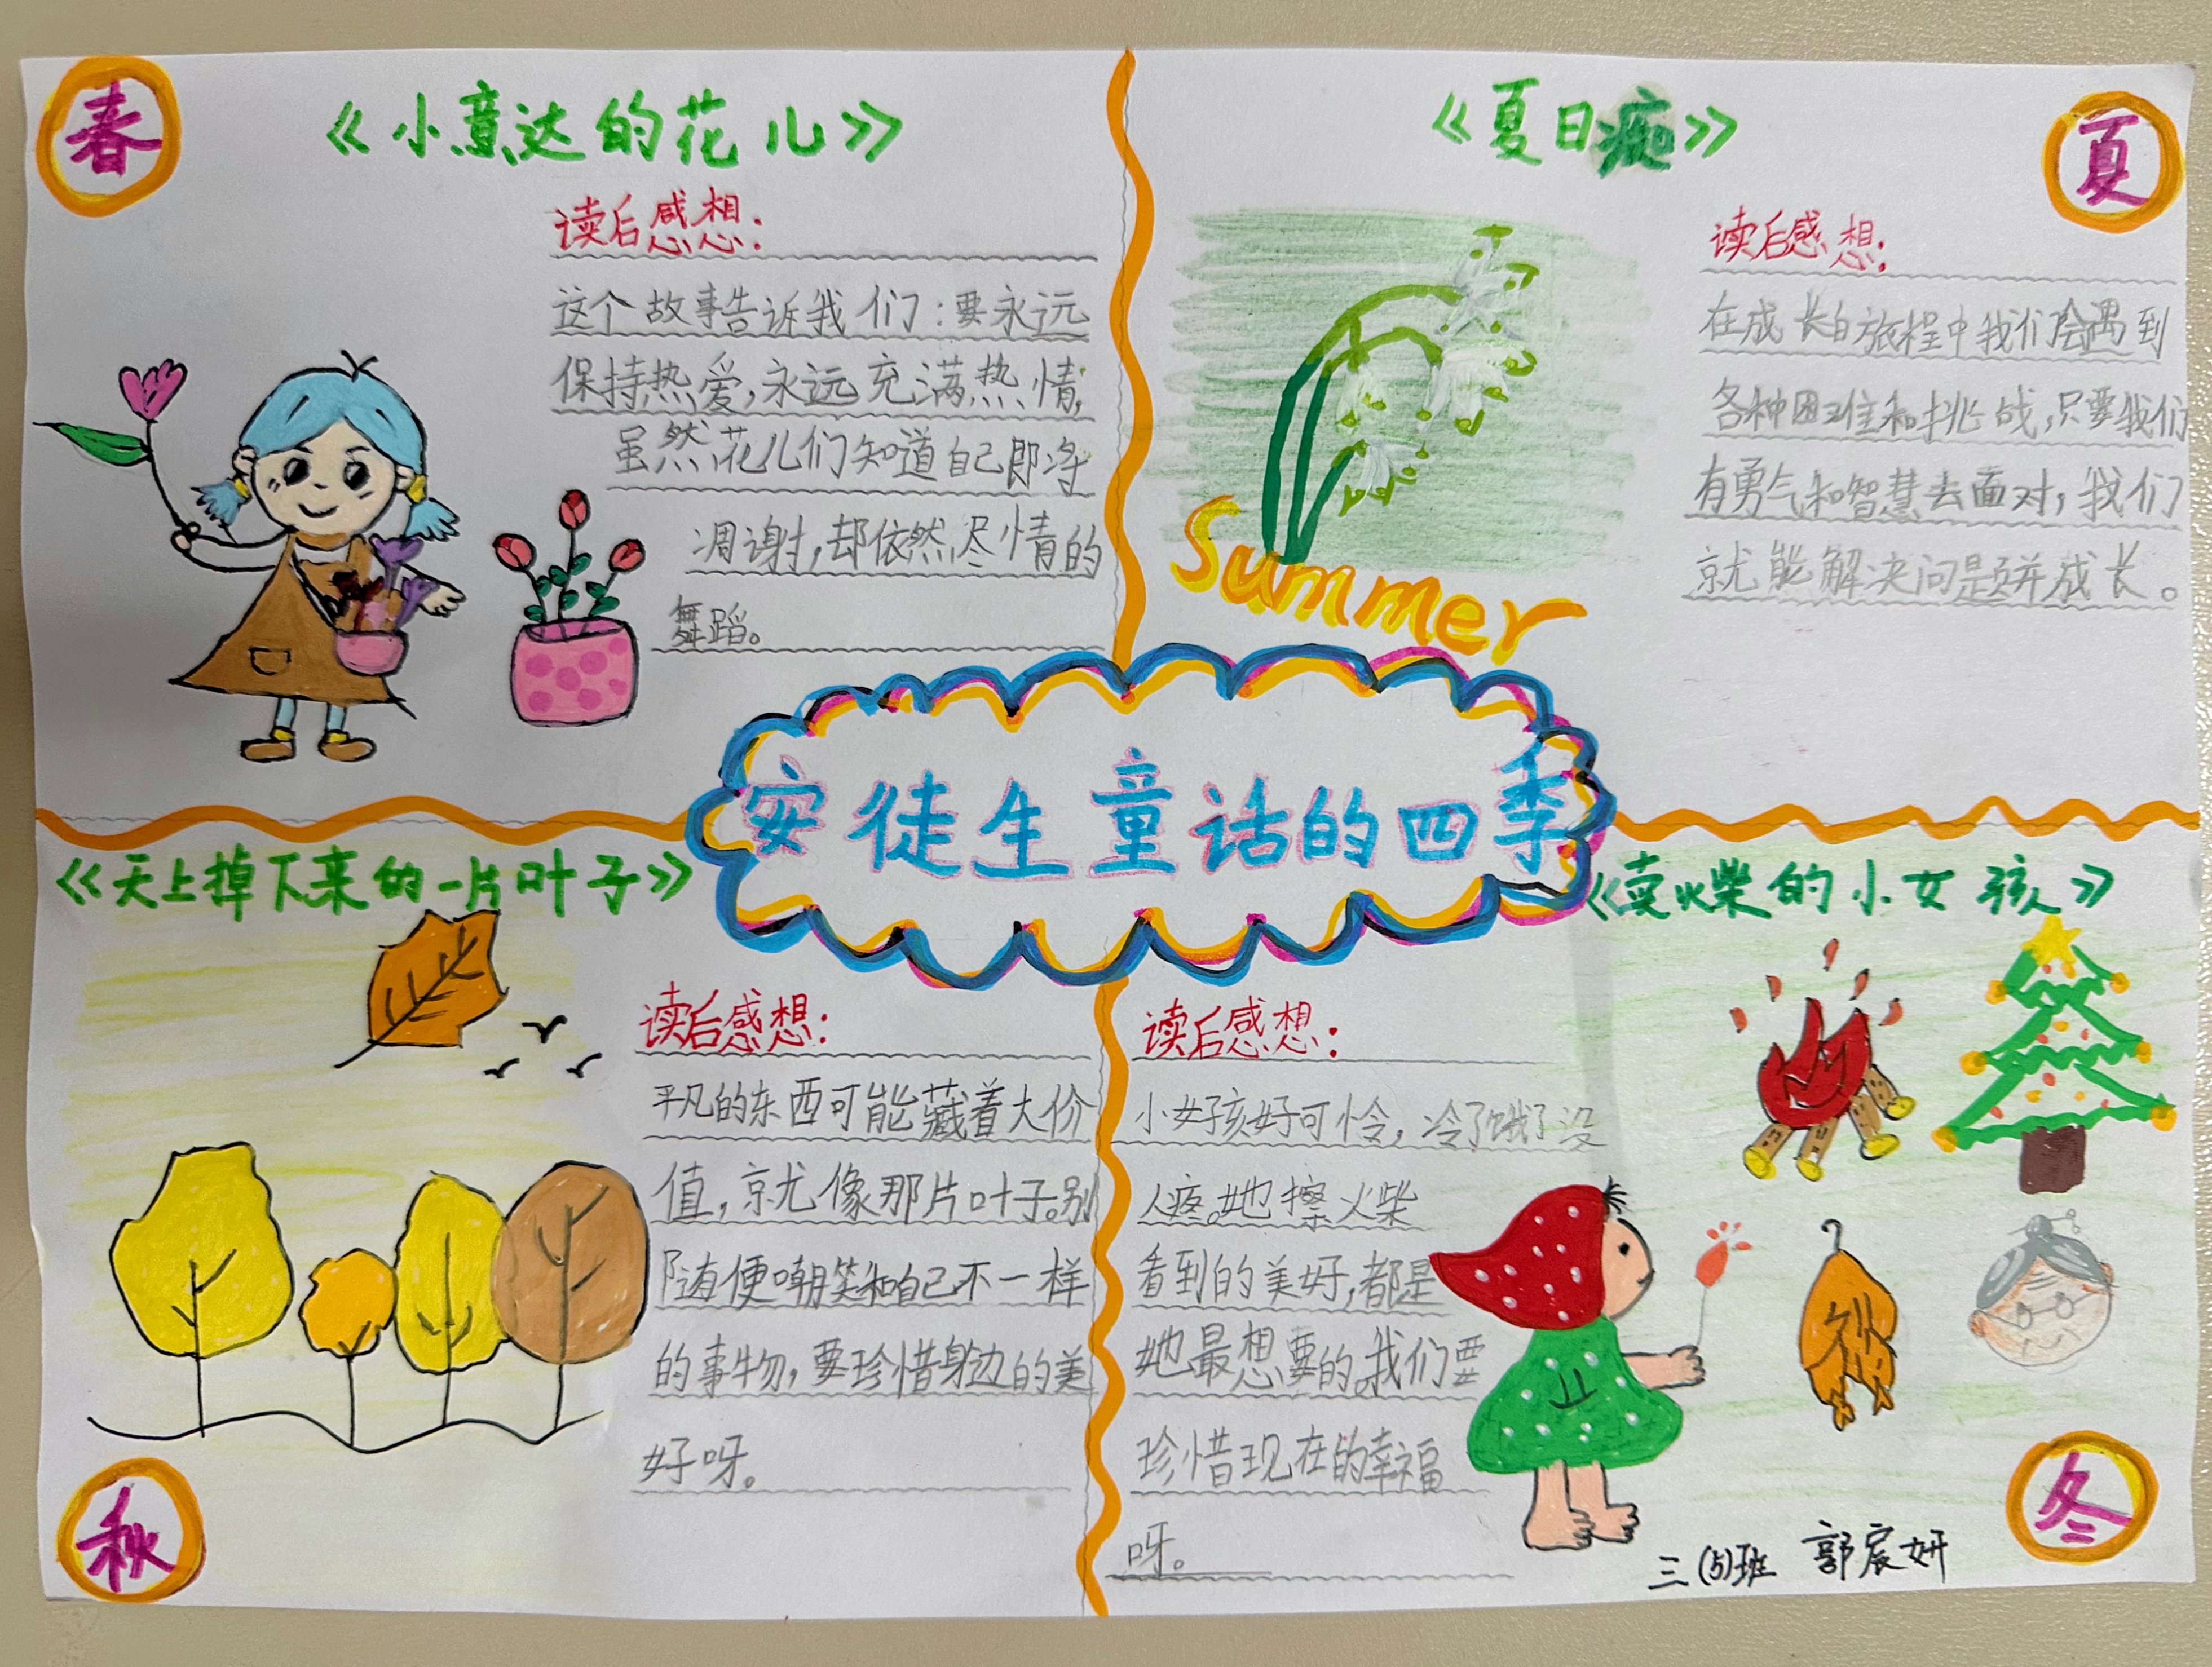 春
《小意达的花儿》
读后感想:
这个故事告诉我们:要永远
保持热爱,永远充满热情,
虽然花儿们知道自己即将
凋谢,却依然尽情的
舞蹈。
《夏日痴》
夏
读后感想:
在成长的旅程中我们会遇到
各种困难和挑战,只要我们
有勇气和智慧去面对,我们
就能解决问题并成长。
Summer
安徒生童话的四季
《天上掉下来的一片叶子》
读后感想:
平凡的东西可能藏着大价
值,就像那片叶子。别
随便嘲笑和自己不一样
的事物,要珍惜身边的美
好呀。
秋
《卖火柴的小女孩》
读后感想:
小女孩好可怜,冷了饿了没
人疼。她擦火柴
看到的美好,都是
她最想要的。我们要
珍惜现在的幸福
呀。
冬
三(5)班 郭宸妍